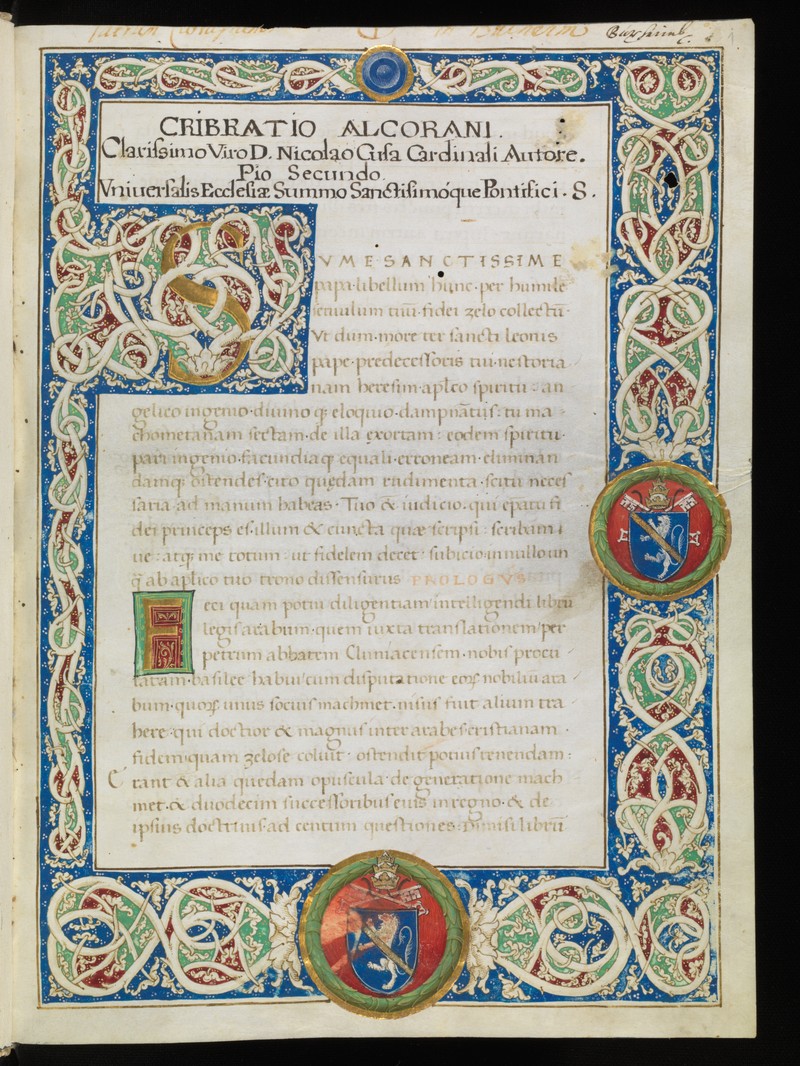 Bux
CRIBRATIO ALCORANI.
Clarissimo Viro D. Nicolao Cusa Cardinali Autore.
Pio Secundo
Vniuersalis Ecclesiæ Summo Sanctisimóque Pontifici. S.
SVME SANCTISSIME
papa·libellum hunc·per humile
seruulum tuū·fidei zelo collectū·
Vt dum·more ter sancti leonis
pape·predecessoris tui·nestoria
nam heresim·aplico spiritu: an
gelico ingenio·diuino qꝫ eloquio·dampnātis: tu ma
chometanam sectam·de illa exortam: eodem spiritu·
pari ingenio·facundiaqꝫ equali·erroneam·eliminan
damqꝫ ostendes·cito quędam rudimenta·scitu neces
saria·ad manum habeas· Tuo & iudicio·qui epatu fi
dei princeps es·illum & cuncta quæ scripsi: scribam
ue: atqꝫ me totum: ut fidelem decet: subicio·in nullo un
qꝫ ab aplico tuo trono dissensurus PROLOGVS
Feci quam potui diligentiam·intelligendi librū
legis arabum·quem iuxta translationem·per
petrum abbatem Cluniacensem·nobis procu
ratam·basilee habui·cum disputatione eorꝫ nobiliū ara
bum·quorꝫ unus socius machmet·nisus fuit alium tra
here: qui doctior & magnus inter arabes·cristianam
fidem·quam zelose coluit· ostendit potius tenendam:
Erant & alia quedam opuscula·de generatione mach
met·& duodecim successoribus eius in regno·& de
ipsius doctrinis·ad centum questiones·Dimisi librū